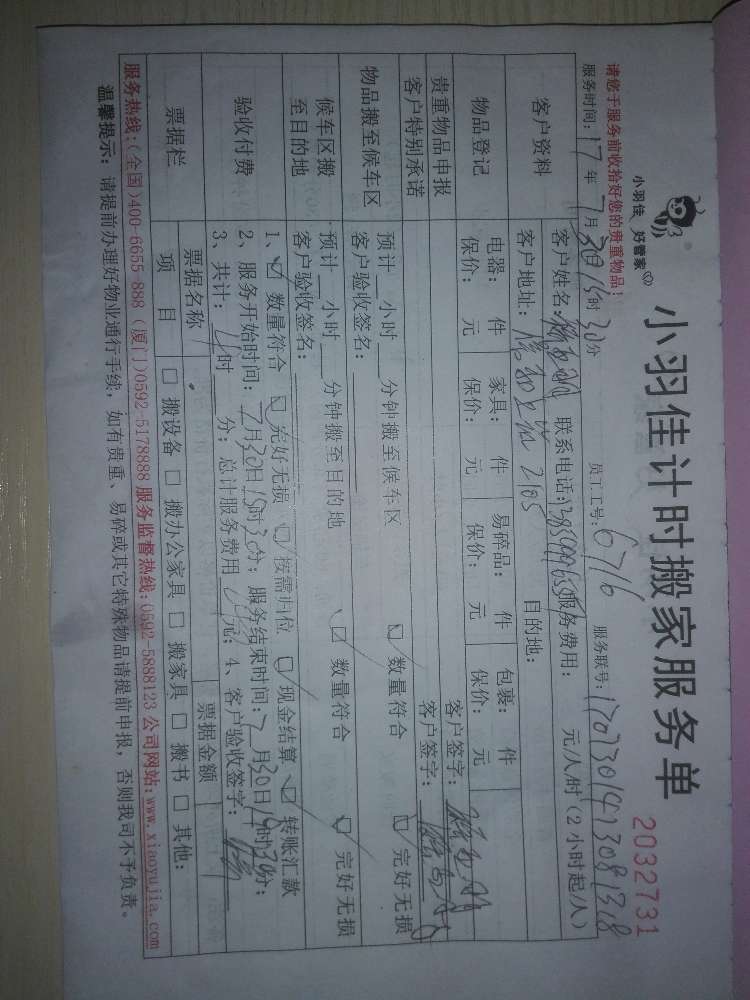 小羽佳 好管家
小羽佳计时搬家服务单
2032731
请您于服务前收拾好您的贵重物品！
服务时间：17年7月30日15时30分 员工工号：6716 服务联号：
客户资料
客户姓名： 联系电话： 服务费用： 元/人/时（2小时起/人）
客户地址： 2105 目的地：
物品登记
电器： 件 家具： 件 易碎品： 件 包裹： 件
保价： 元 保价： 元 保价： 元 保价： 元
贵重物品申报 客户签字：
客户特别承诺 客户签字：
物品搬至候车区
预计 小时 分钟搬至候车区 ☑ 数量符合 ☑ 完好无损
客户验收签名：
候车区搬至目的地
预计 小时 分钟搬至目的地 ☑ 数量符合 ☑ 完好无损
客户验收签名：
验收付费
1、☑ 数量符合 ☑ 完好无损 ☑ 按需归位 ☑ 现金结算 ☑ 转账汇款
2、服务开始时间：7月30日15时30分；服务结束时间：7月30日19时30分；
3、共计：4时 分；总计服务费用 元；4、客户验收签字：
票据栏
票据名称 票据金额
项目 □ 搬设备 □ 搬办公家具 □ 搬家具 □ 搬书 □ 其他：
服务热线：(全国)400-6655-888 (厦门)0592-5178888 服务监督热线：0592-5888123 公司网站：www.xiaoyujia.com
温馨提示：请提前办理好物业通行手续，如有贵重、易碎或其它特殊物品请提前申报，否则我司不予负责。